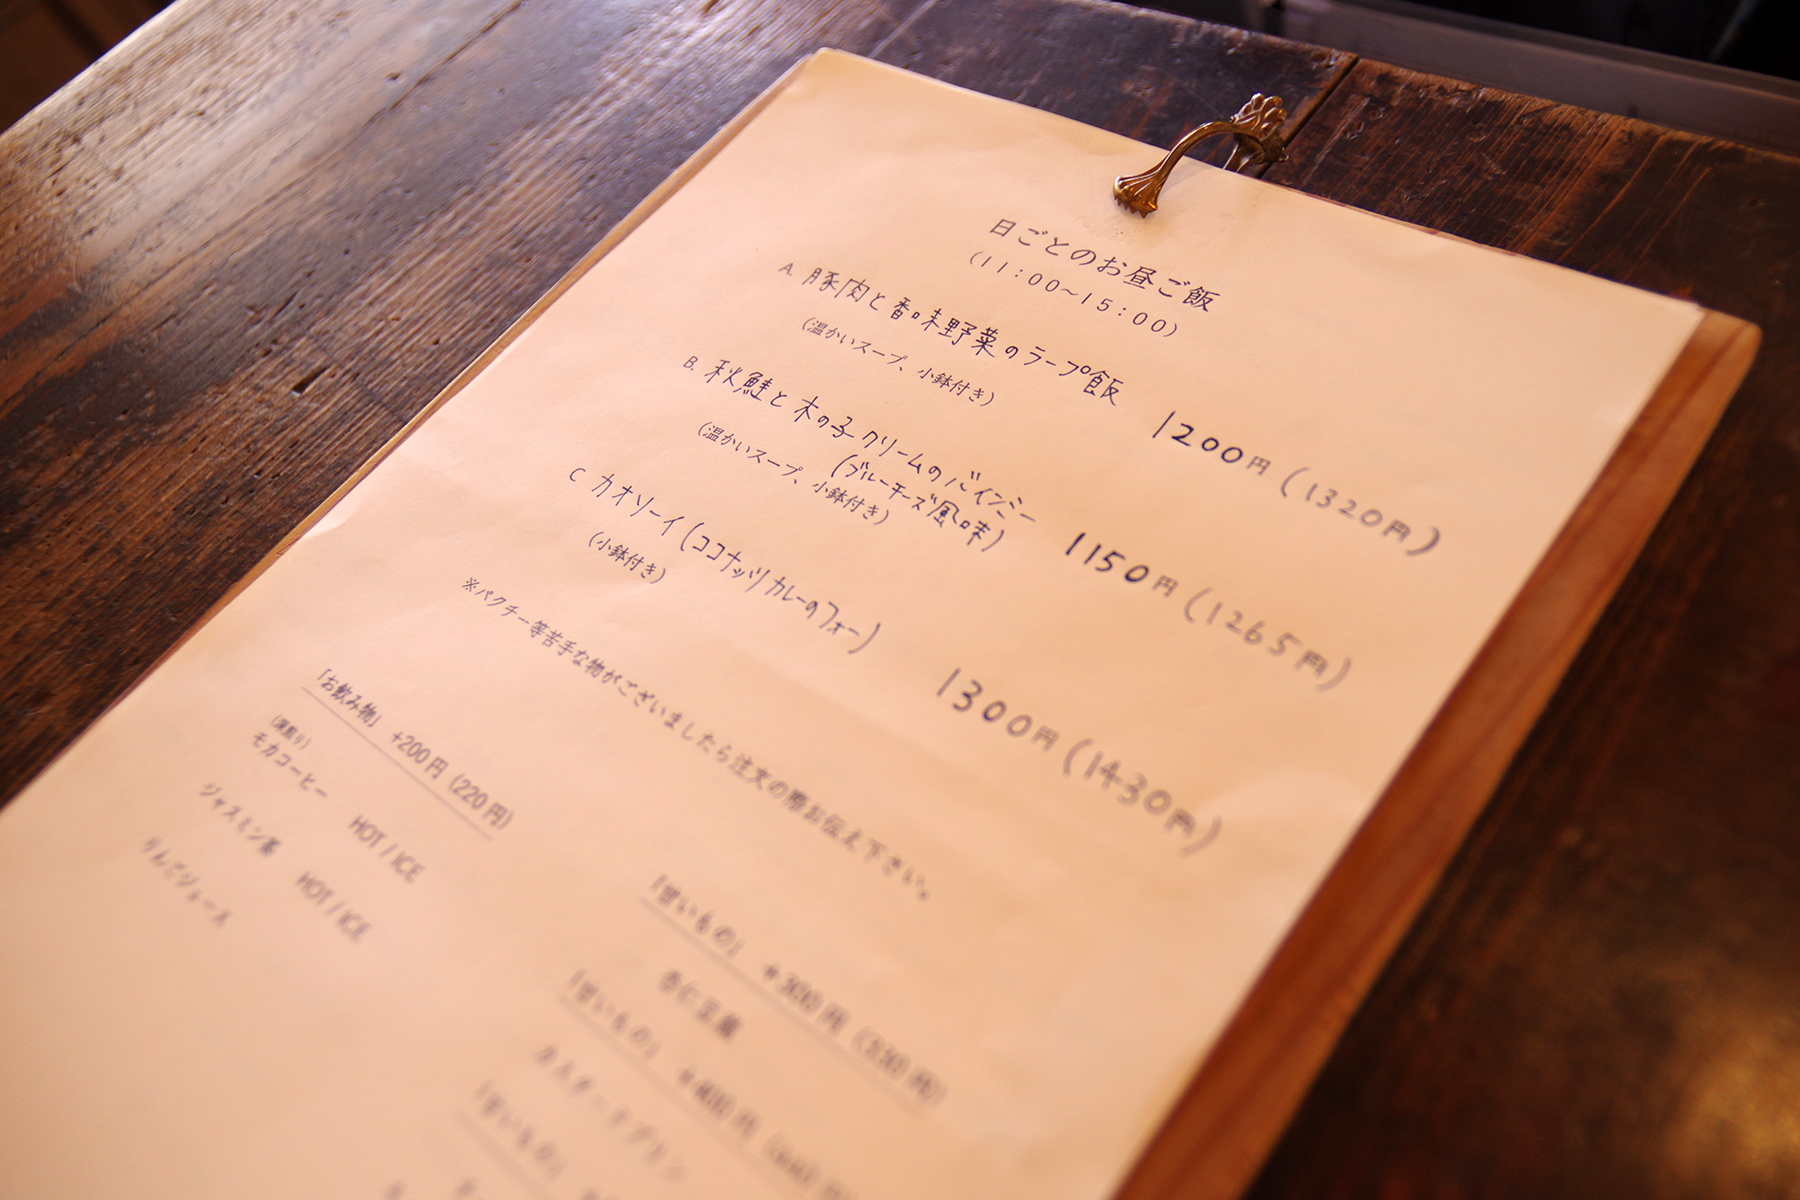 日ごとのお昼ご飯
(11:00~15:00)
A. 豚肉と香味野菜のラープ飯 1200円(1320円)
(温かいスープ、小鉢付き)
B. 秋鮭と木の子クリームのバインミー 1150円(1265円)
(ブルーチーズ風味)
(温かいスープ、小鉢付き)
C カオソーイ(ココナッツカレーのフォー) 1300円(1430円)
(小鉢付き)
※パクチー等苦手な物がございましたら注文の際お伝え下さい。
「お飲み物」 +200円(220円)
モカコーヒー HOT / ICE
ジャスミン茶 HOT / ICE
りんごジュース
「甘いもの」 +300円(330円)
杏仁豆腐
「甘いもの」 +400円
カスタードプリン
「甘いもの」